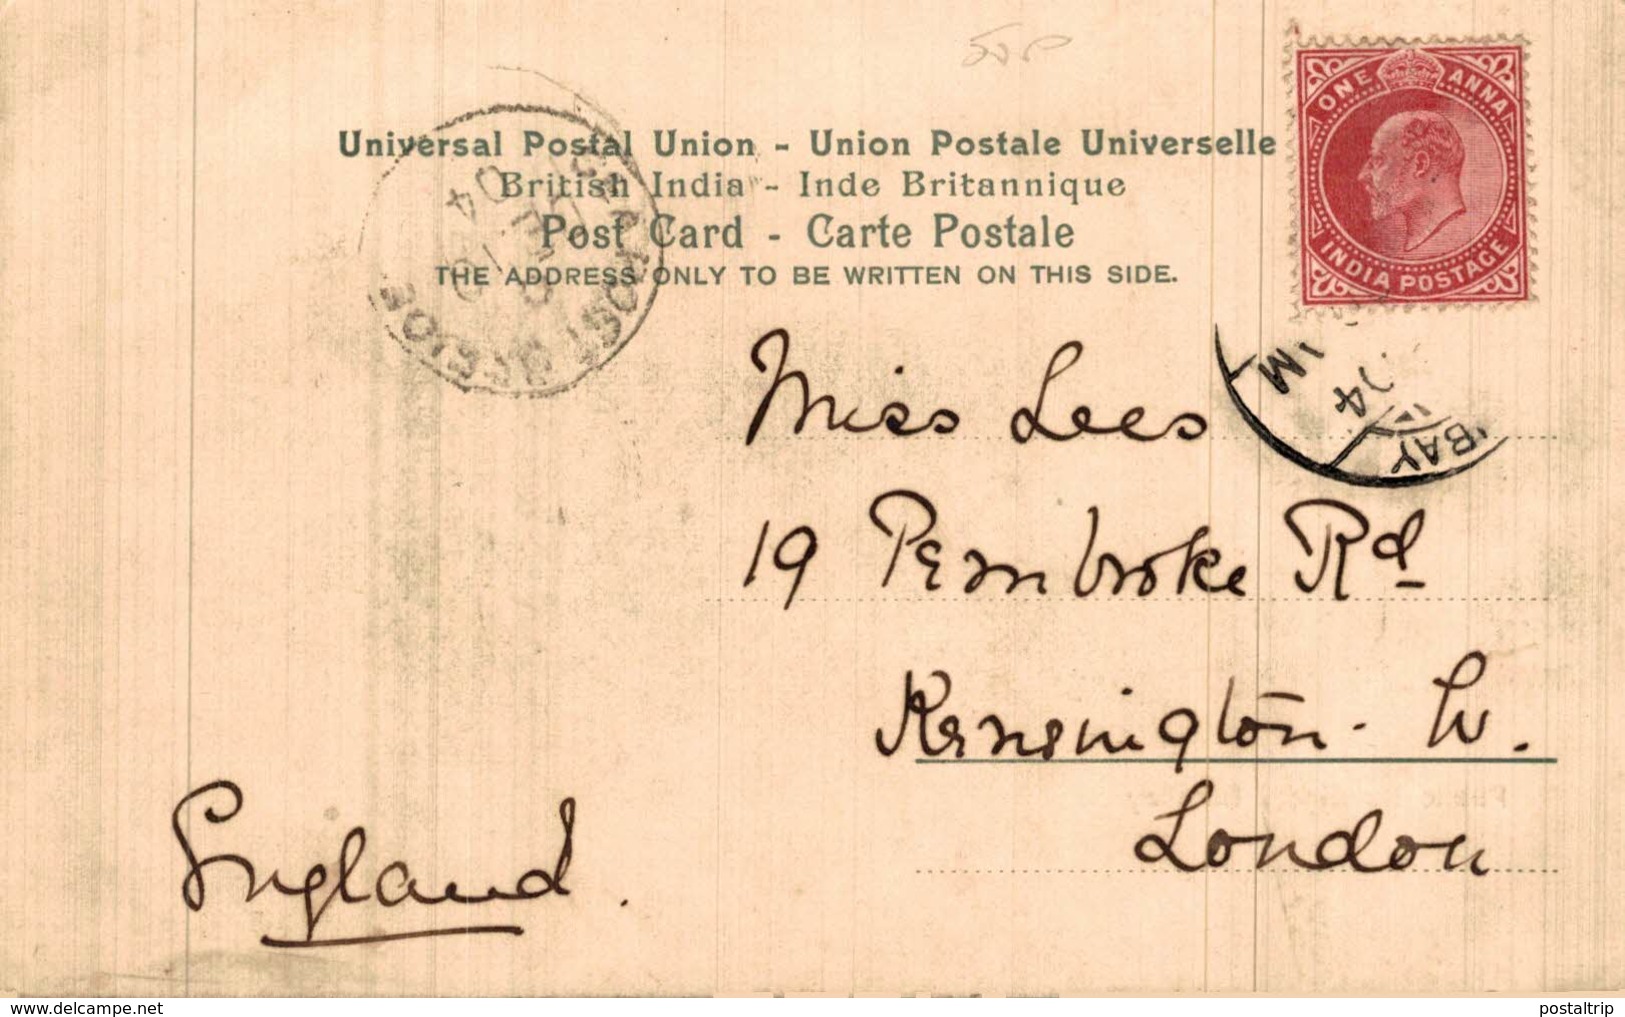 Universal Postal Union - Union Postale Universelle
British India - Inde Britannique
Post Card - Carte Postale
THE ADDRESS ONLY TO BE WRITTEN ON THIS SIDE.
ONE ANNA
INDIA POSTAGE
SEAPOST OFFICE
04
04
BAY
Miss Lees
19 Pembroke Rd
Kensington. W.
London
England.
delcampe.net
postaltrip